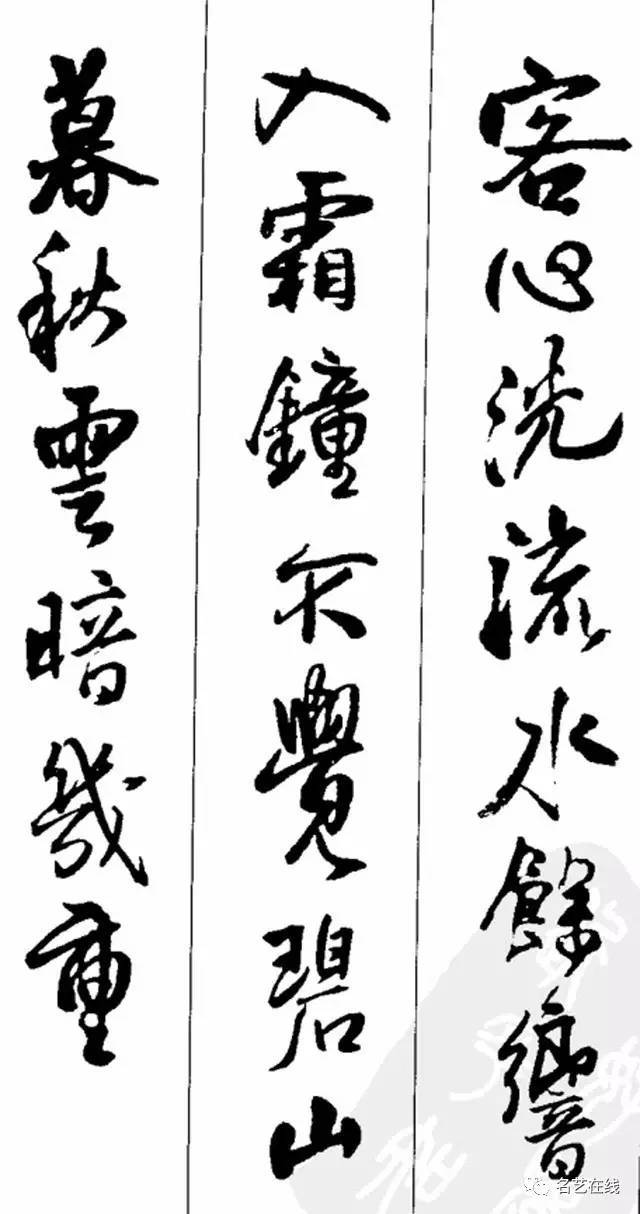 客心洗流水餘響
入霜鐘不覺碧山
暮秋雲暗幾重
名艺在线